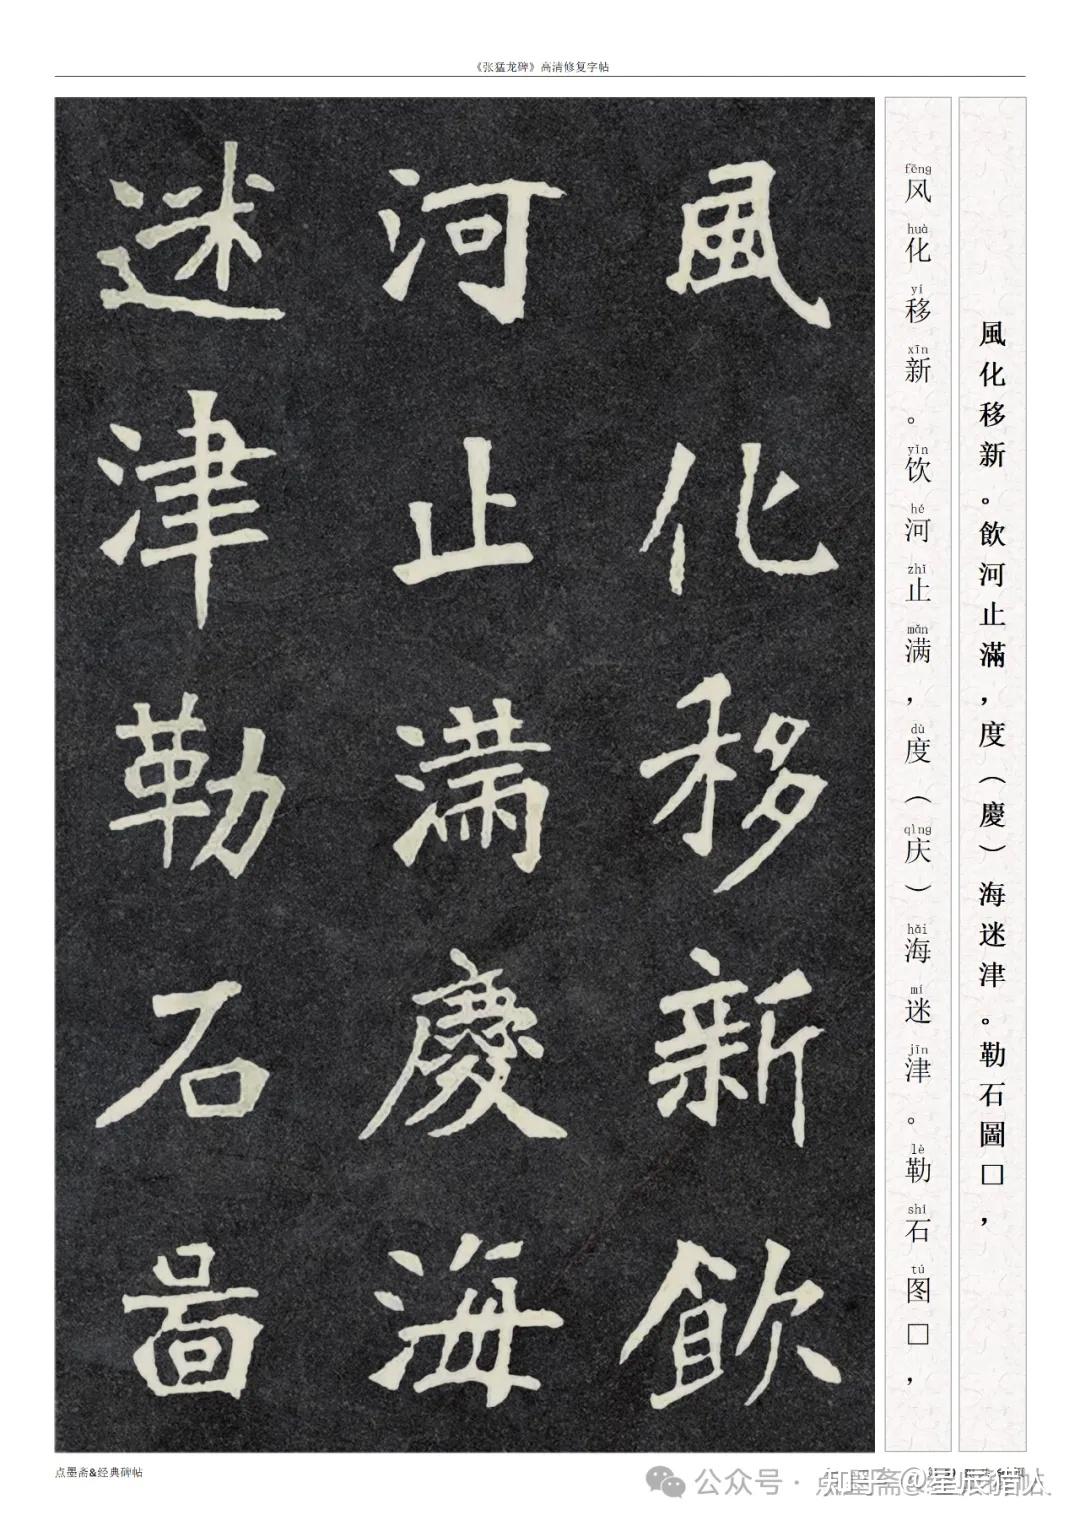 《张猛龙碑》高清修复字帖
風化移新。飲河止滿，度（慶）海迷津。勒石圖□，
fēng huà yí xīn yǐn hé zhǐ mǎn dù qìng hǎi mí jīn lè shí tú
风化移新。饮河止满，度（庆）海迷津。勒石图□，
風化移新飲
河止滿慶海
迷津勒石啚
点墨斋&经典碑帖
公众号·点墨斋
知乎 @星辰猎人